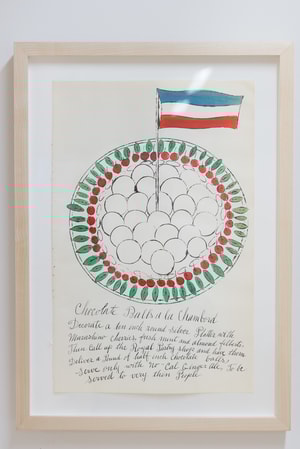 Chocolate Balls a la Chambord
Decorate a ten inch round silver Platter with
Maraschino cherries fresh mint and almond filberts.
Then call up the Royal Pastry shop and have them
deliver a thund of half inch chocolate balls.
Serve only with no Cal Ginger ale. To be
served to very thin People